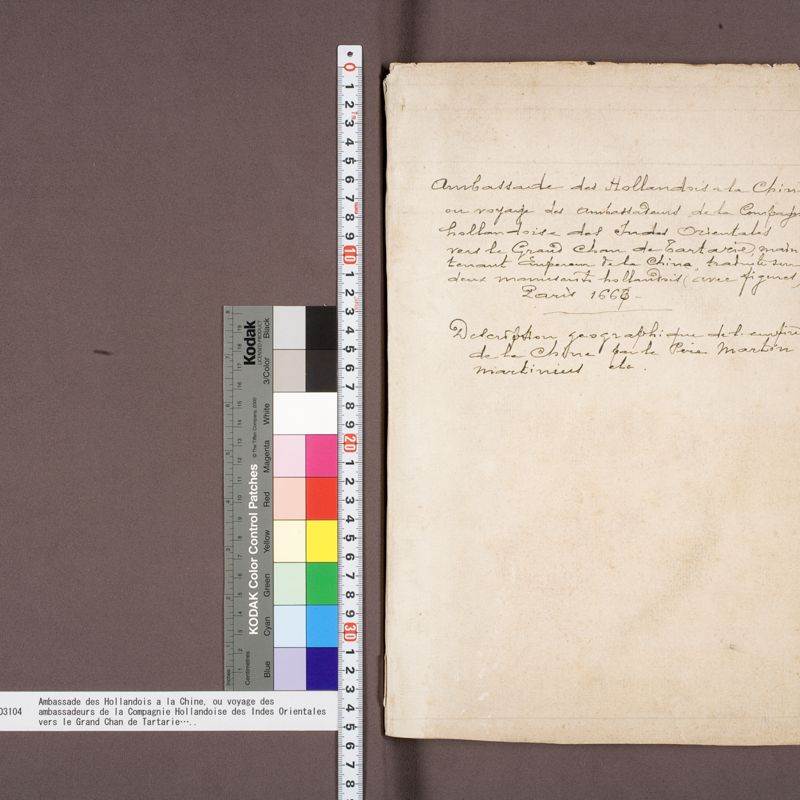 Ambassade des Hollandois a la Chin
ou voyage des ambassadeurs de la Compagn
hollandoise des Indes Orientales
vers le Grand Chan de Tartarie, main
tenant Empereur de la Chine, traduit sur
deux manuscrits hollandois (avec figures)
Paris 1666 -
Description geographique de l'empire
de la Chine par le Père Martin
Martinius etc.
Kodak
LICENSED PRODUCT
KODAK Color Control Patches
© The Tiffen Company, 2000
Black
3/Color
White
Magenta
Red
Yellow
Green
Cyan
Blue
Centimetres
Inches
0 1 2 3 4 5 6 7 8 9 10 1 2 3 4 5 6 7 8 9 20 1 2 3 4 5 6 7 8 9 30 1 2 3 4 5 6 7 8
03104
Ambassade des Hollandois a la Chine, ou voyage des
ambassadeurs de la Compagnie Hollandoise des Indes Orientales
vers le Grand Chan de Tartarie…..